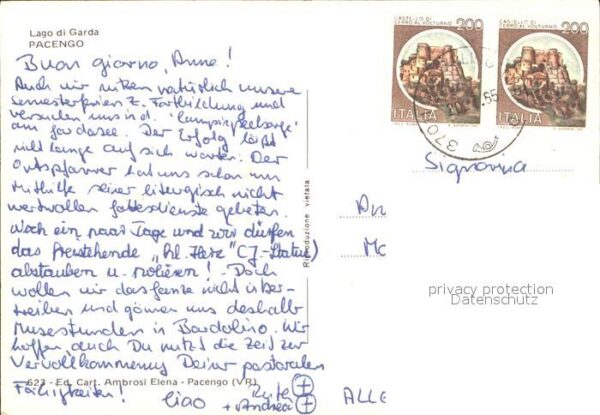 Lago di Garda
PACENGO
Buon giorno, Anne!
Auch wir nutzen natürlich unsere
Semesterferien z. Fortbildung und
versuchen uns i. d. "Campingseelsorge"
am Gardasee. Der Erfolg läßt
nicht lange auf sich warten: Der
Ortspfarrer hat uns schon um
Mithilfe seiner liturgisch nicht
wertvollen Gottesdienste gebeten.
Noch ein paar Tage und wir dürfen
das freistehende "hl. Herz" (J.-Statue)
abstauben u. polieren! Doch
wollen wir das ganze nicht über-
treiben und gönnen uns deshalb
Musestunden in Bardolino. Wir
hoffen, auch Du nutzt die Zeit zur
Vervollkommnung Deiner pastoralen
623 - Ed. Cart. Ambrosi Elena - Pacengo (VR)
Fähigkeiten!
Ciao
+ Andrea
Riproduzione vietata
CASTELLO DI
CERRO AL VOLTURNO
200
ITALIA
CASTELLO DI
CERRO AL VOLTURNO
200
ITALIA
370
85
Signorina
An
Mo
privacy protection
Datenschutz
ALLE